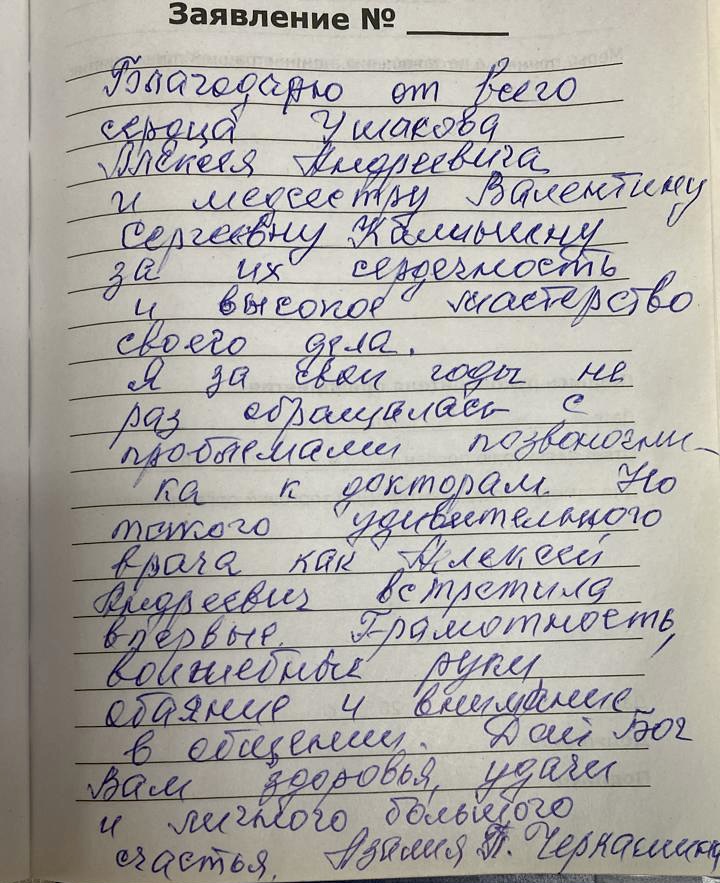 Заявление № ______
Благодарю от всего
сердца Ушакова
Алексея Андреевича
и медсестру Валентину
Сергеевну Калинину
за их сердечность
и высокое мастерство
своего дела.
Я за свои годы не
раз обращалась с
проблемами позвоночни-
ка к докторам. Но
такого удивительного
врача как Алексей
Андреевич встретила
впервые. Грамотность,
волшебные руки,
обаяние и внимание
в общении. Дай Бог
Вам здоровья, удачи
и личного большого
счастья. Азалия П.